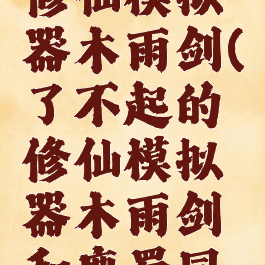 修仙模拟
器木雨剑(
了不起的
修仙模拟
器木雨剑